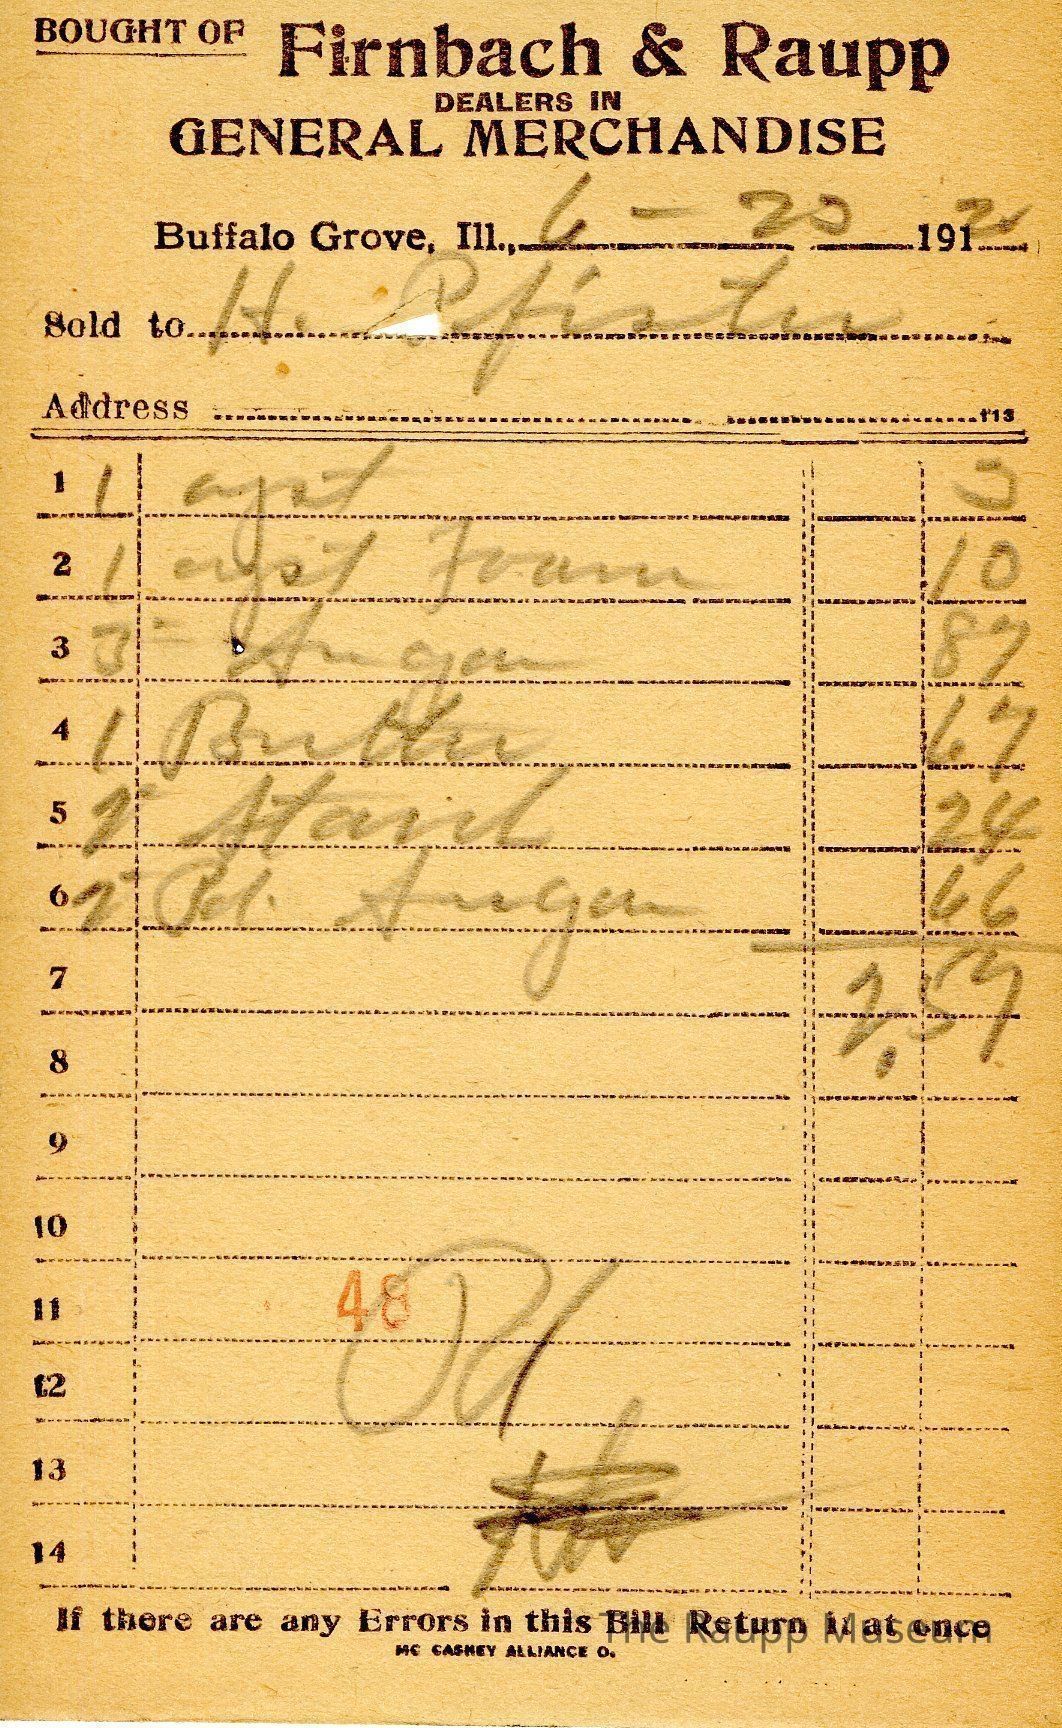 BOUGHT OF Firnbach & Raupp
DEALERS IN
GENERAL MERCHANDISE
Buffalo Grove, Ill., 6 - 20 1912 20
Sold to H. Pfister
Address 113
1 1 yst 3
2 1 yst Foam 10
3 3 Sugar 87
4 1 Butter 67
5 2 Starch 24
6 2 Pd. Sugar 66
7 2.57
8
9
10
11 48
12 Pd
13
14
If there are any Errors in this Bill Return it at once
MC CASKEY ALLIANCE O.
The Raupp Museum